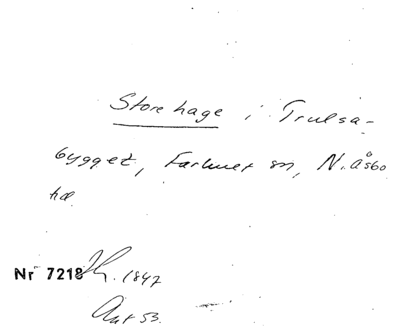 Store hage i Trulsa-
bygget, Farhult sn, N. Åsbo
hd
Nr 7218 Kh. 1847
Ant 53.